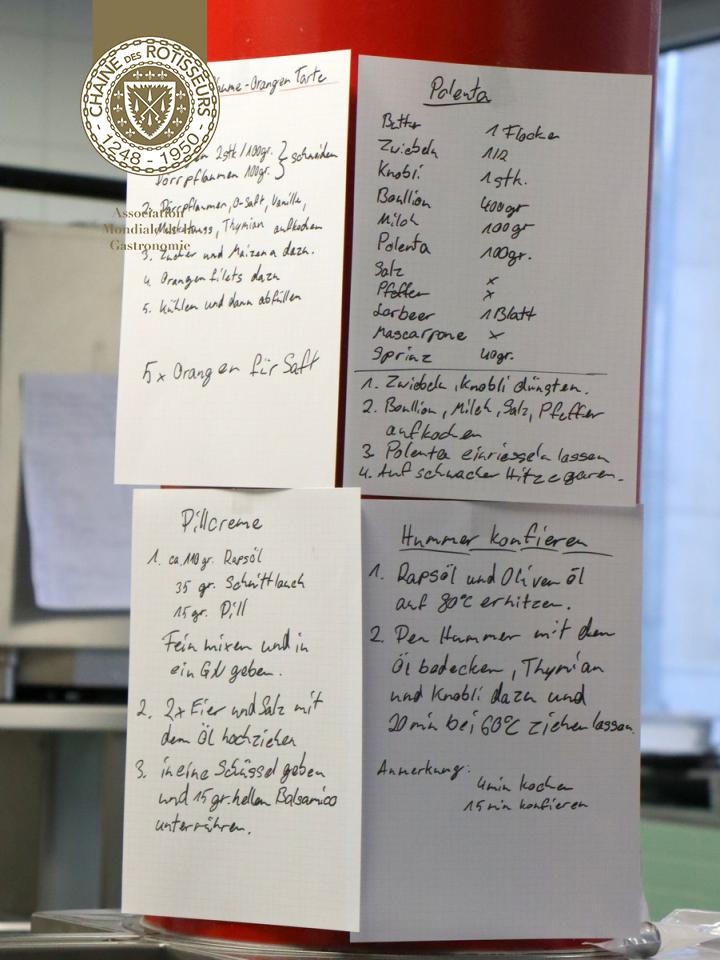 CHAINE DES ROTISSEURS
1248 - 1950
Association
Mondiale de la
Gastronomie
ume-Orangen Tarte
2stk/100gr. } schneiden
Dörrpflaumen 100gr.
2. Dörrpflaumen, O-Saft, Vanille,
Thymian aufkochen
3. Zucker und Maizena dazu.
4. Orangenfilets dazu
5. Kühlen und dann abfüllen
5x Orangen für Saft
Polenta
Butter 1 Flocken
Zwiebeln 1/2
Knobli 1 stk.
Boullion 400gr
Milch 100gr
Polenta 100gr.
Salz x
Pfeffer x
Lorbeer 1 Blatt
Mascarpone x
Sprinz 40gr.
1. Zwiebeln, Knobli düngten.
2. Boullion, Milch, Salz, Pfeffer
aufkochen
3. Polenta einriesseln lassen
4. Auf schwacher Hitze garen.
Dillcreme
1. ca. 110 gr. Rapsöl
35 gr. Schnittlauch
15 gr. Dill
Fein mixen und in
ein GN geben.
2. 2x Eier und Salz mit
dem Öl hochziehen
3. in eine Schüssel geben
und 15 gr. hellen Balsamico
unterrühren.
Hummer konfieren
1. Rapsöl und Oliven öl
auf 80°C erhitzen.
2. Den Hummer mit dem
Öl bedecken, Thymian
und Knobli dazu und
20 min bei 60°C ziehen lassen.
Anmerkung:
4min kochen
15 min konfieren